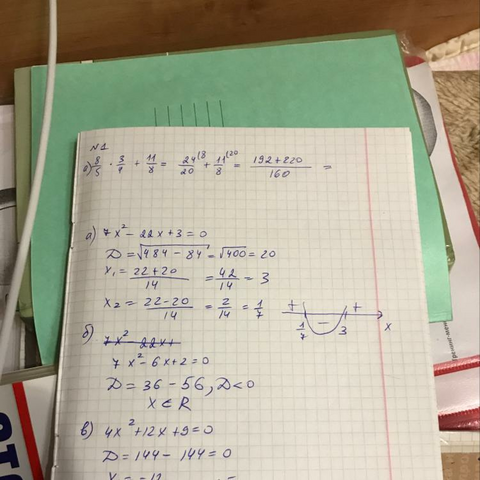 №1
в) 8/5 · 3/4 + 11/8 = 24/20 (8 + 11/8 (20 = 192+220/160 =
а) 7x² - 22x + 3 = 0
D = √484 - 84 = √400 = 20
x₁ = 22+20/14 = 42/14 = 3
x₂ = 22-20/14 = 2/14 = 1/7
+ - +
1/7 3 x
б) 7x² - 22x+
7x² - 6x + 2 = 0
D = 36 - 56, D < 0
x ∈ R
в) 4x² + 12x + 9 = 0
D = 144 - 144 = 0
x = -12